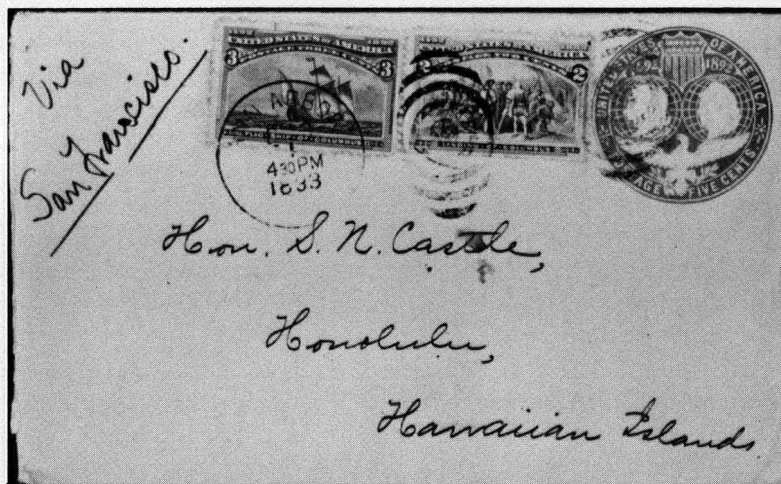 Via
San Francisco.
3 3
2 2
430PM
1893
UNITED STATES OF AMERICA
1892
POSTAGE FIVE CENTS
Hon. S. N. Castle,
Honolulu,
Hawaiian Islands